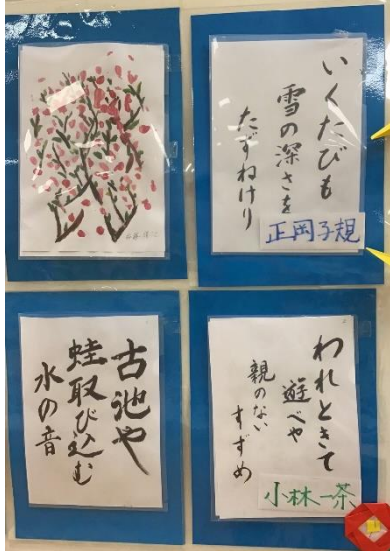 いくたびも
雪の深さを
たずねけり
正岡子規
古池や
蛙取び込む
水の音
われときて
遊べや
親のない
すずめ
小林一茶